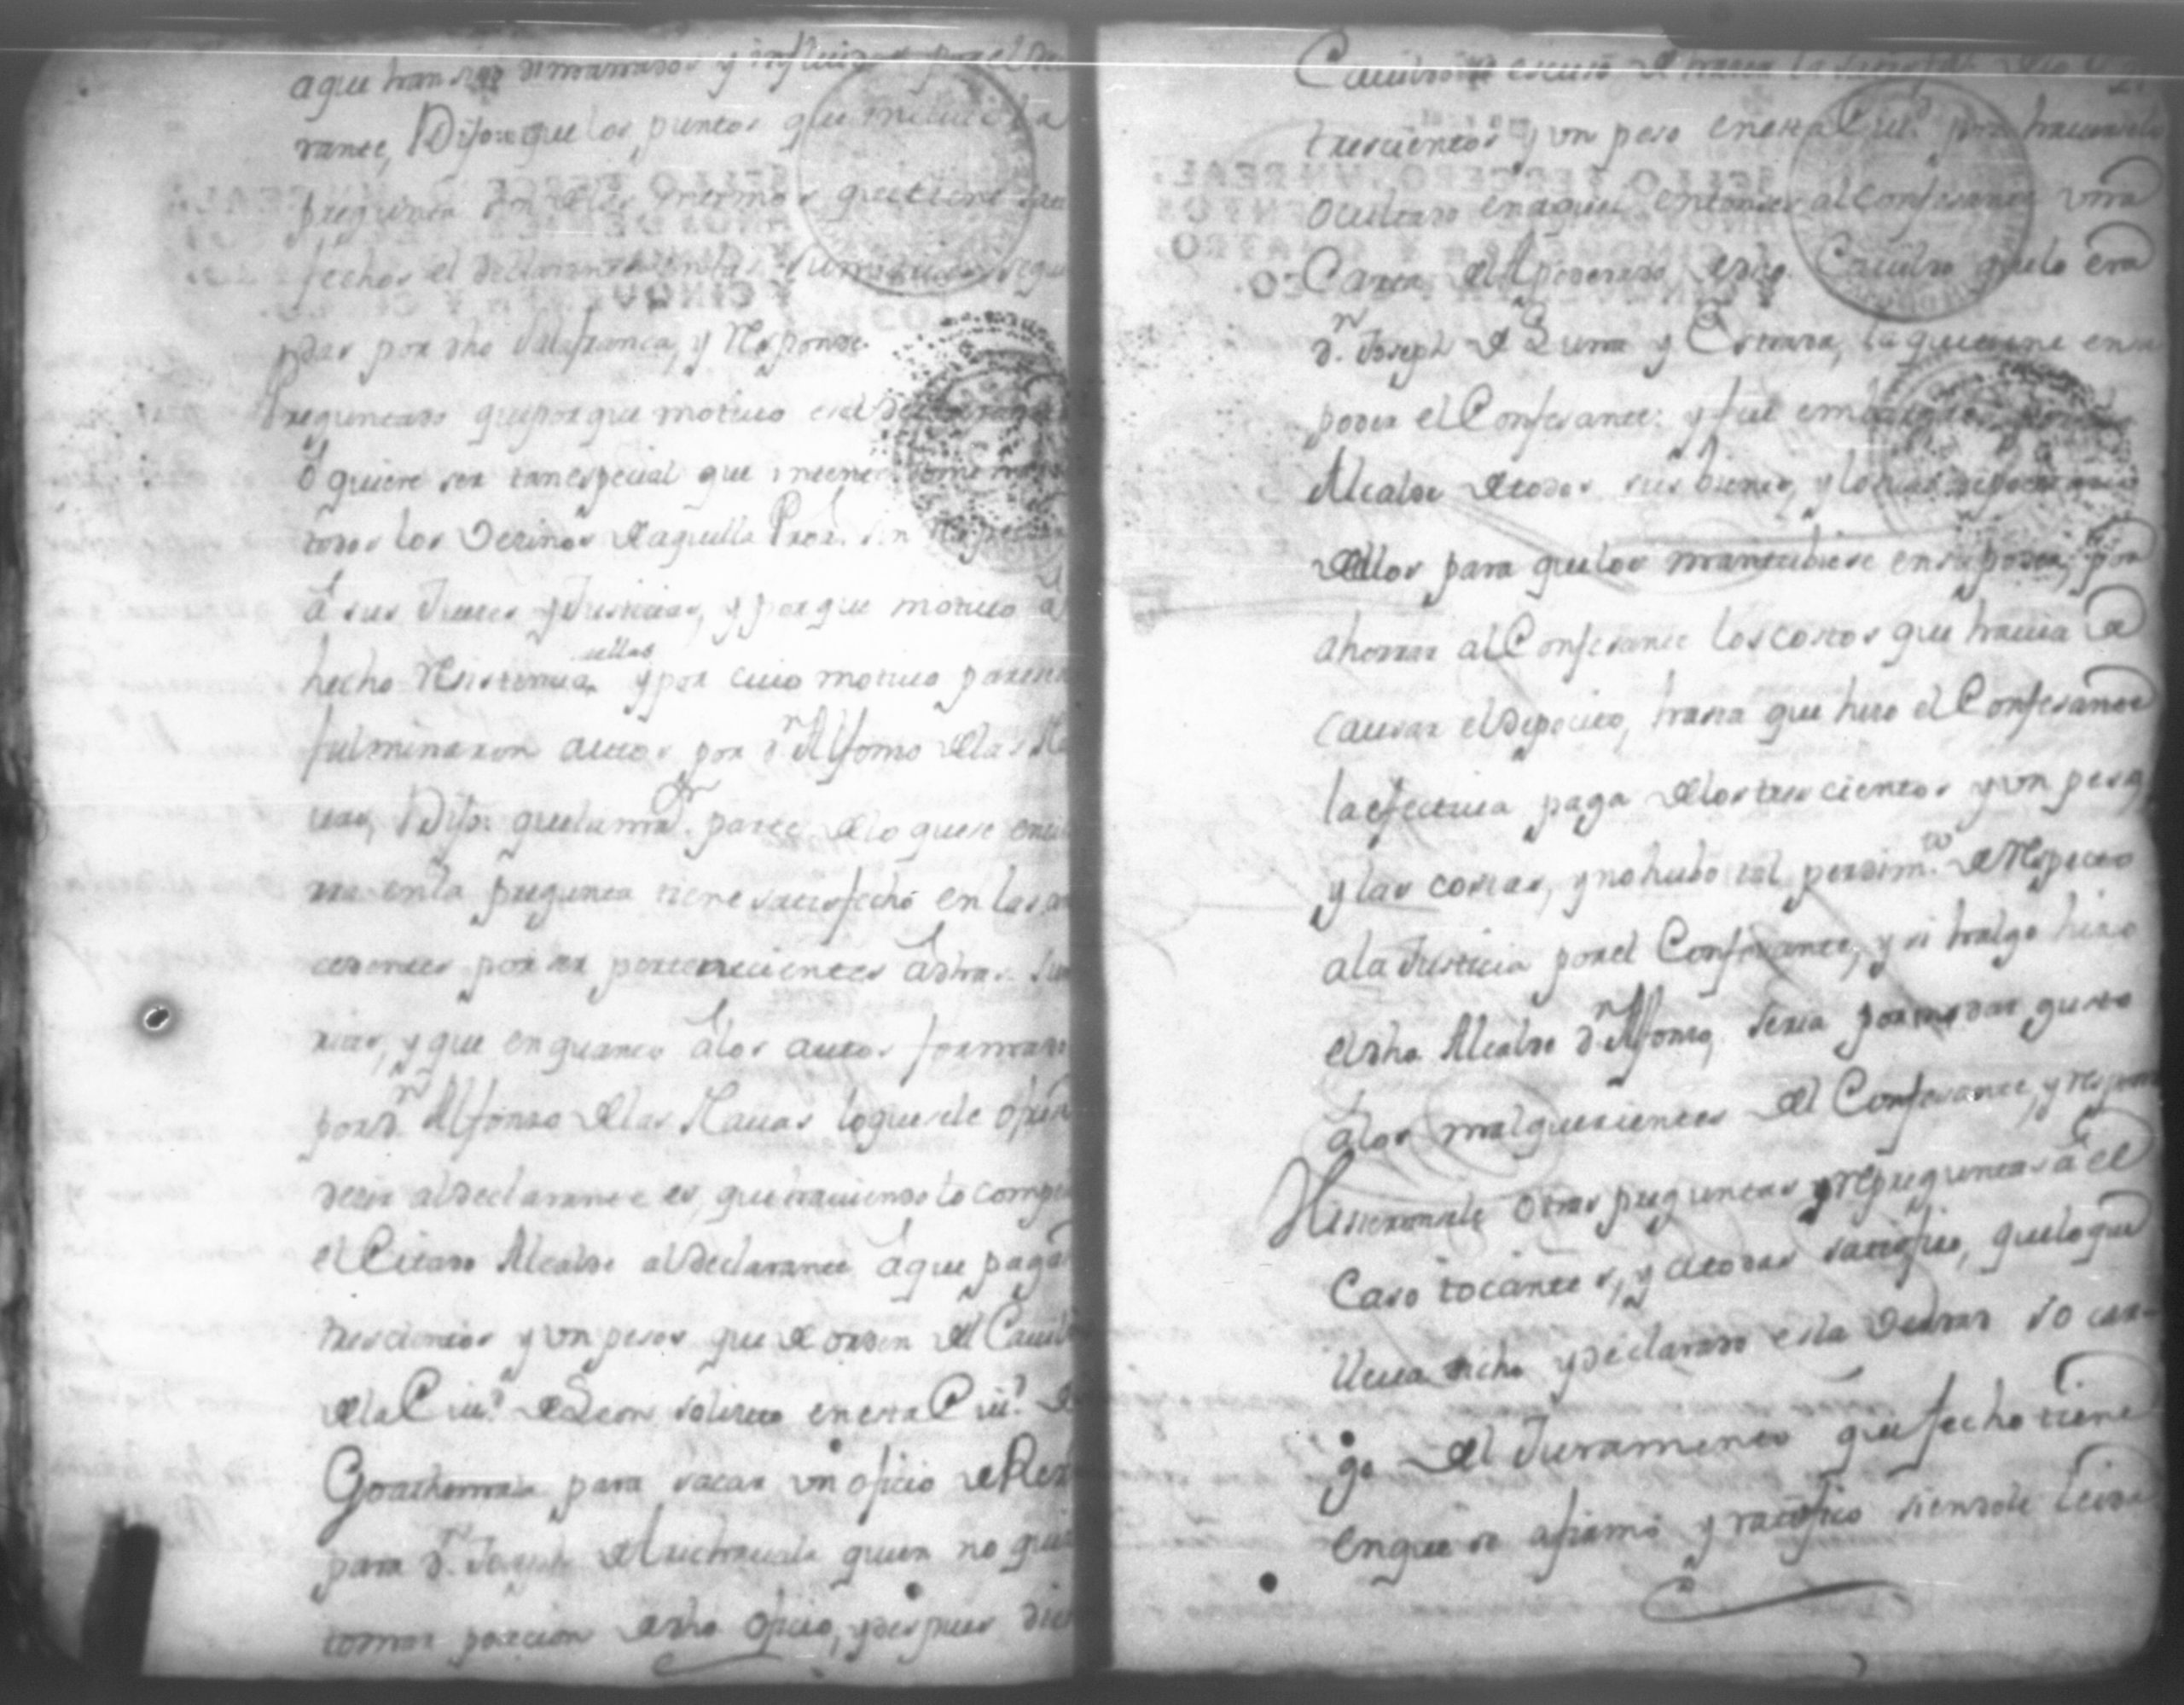 a que han sido dimanados y influidos por el de
rante, Dijo que los puntos que incluie la
pregunta son de los mesmos que tiene satis
fechos el declarante en las sumarias segui
das por dho Villafranca, y responde
Preguntado que por que motiuo es el declarante
ô quiere ser tan especial que
todos los Vezinos de aquella Prou.ª sin respecto
â sus Jueces y Justicias, y por que motiuo â
hecho resistencia â ellas y por cuio motiuo parese
fulminaron autos por d.n Alfonso de las Na
uas, Dijo: que la maior parte de lo que se encie
rra en la pregunta tiene satisfecho en las an
cedentes por ser pertenecientes â dhas suma
rias, y que en quanto â los autos formados
por d.n Alfonso de las Nauas lo que se le ofrece
decir al declarante es, que haciendole compe
el Citado Alcalde al declarante â que pagâ
trescientos y un pesos que de orden del Cauild
de la Ciu.d de Leon solicito en esta Ciu.d de
Goathemala para sacar un oficio de Rex
para d.n Joseph de quien no qui
tomar porcion de dho oficio, y despues dich
Cauildo se escuso de hauer la de los
trescientos y un peso en esta Ciu.d por hauersele
ocultado en aquel entonces al Confesante una
Carta del Apoderado de dho Cauildo que lo era
d.n Joseph de Luna y Estrada, la que tiene en su
poder el Confesante: y fue embargado por el
Alcalde de todos sus bienes, y lo hizo depositario
de ellos para que los mantubiese en su poder, por
ahorrar al Confesante los costos que hauia de
causar el deposito, hasta que hizo el Confesante
la efectiua paga de los trescientos y un peso
y las costas, y no hubo tal perdim.to de respecto
a la Justicia por el Confesante, y si halgo hizo
el dho Alcalde d.n Alfonso, seria por dar gusto
â los malquerientes del Confesante, y responde
Hisieronsele otras preguntas y repreguntas â el
Caso tocantes, y a todas satisfizo, que lo que
lleua dicho y declarado es la Verdad so car-
go del Juramento que fecho tiene
en que se afirmó y ratifico siendole leida